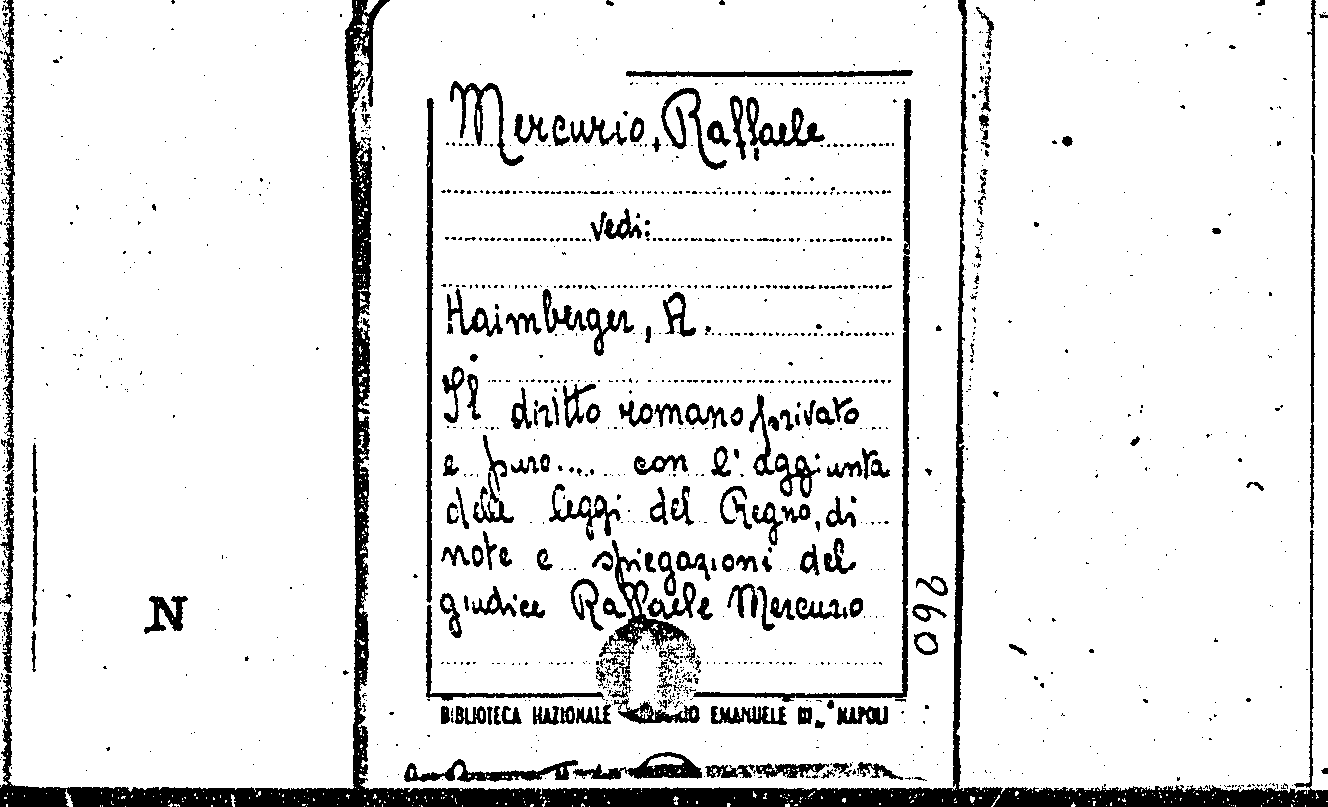 Mercurio, Raffaele
vedi:
Haimberger, A.
Il diritto romano privato
e puro.... con l'aggiunta
delle leggi del Regno, di
note e spiegazioni del
giudice Raffaele Mercurio
260
N
BIBLIOTECA NAZIONALE EMANUELE III„ NAPOLI